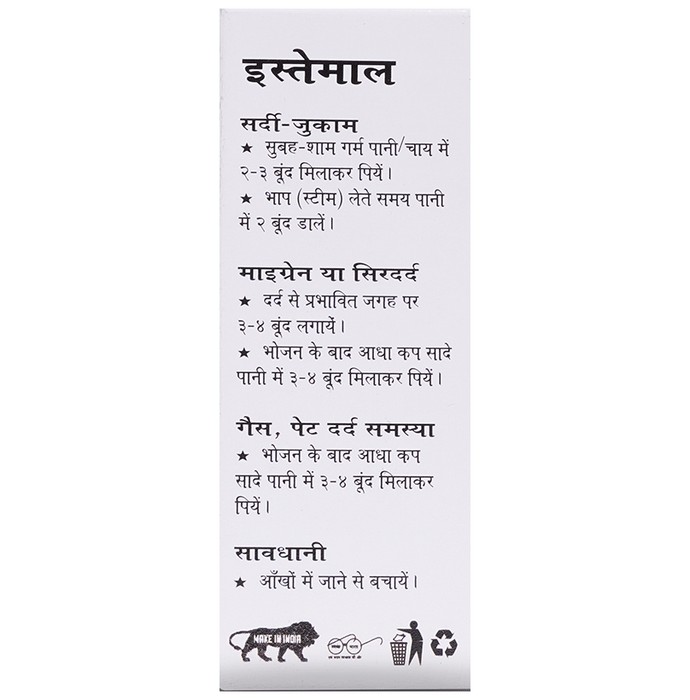 इस्तेमाल
सर्दी-जुकाम
★ सुबह-शाम गर्म पानी/चाय में
२-३ बूंद मिलाकर पियें।
★ भाप (स्टीम) लेते समय पानी
में २ बूंद डालें।
माइग्रेन या सिरदर्द
★ दर्द से प्रभावित जगह पर
३-४ बूंद लगायें।
★ भोजन के बाद आधा कप सादे
पानी में ३-४ बूंद मिलाकर पियें।
गैस, पेट दर्द समस्या
★ भोजन के बाद आधा कप
सादे पानी में ३-४ बूंद मिलाकर
पियें।
सावधानी
★ आँखों में जाने से बचायें।
MAKE IN INDIA